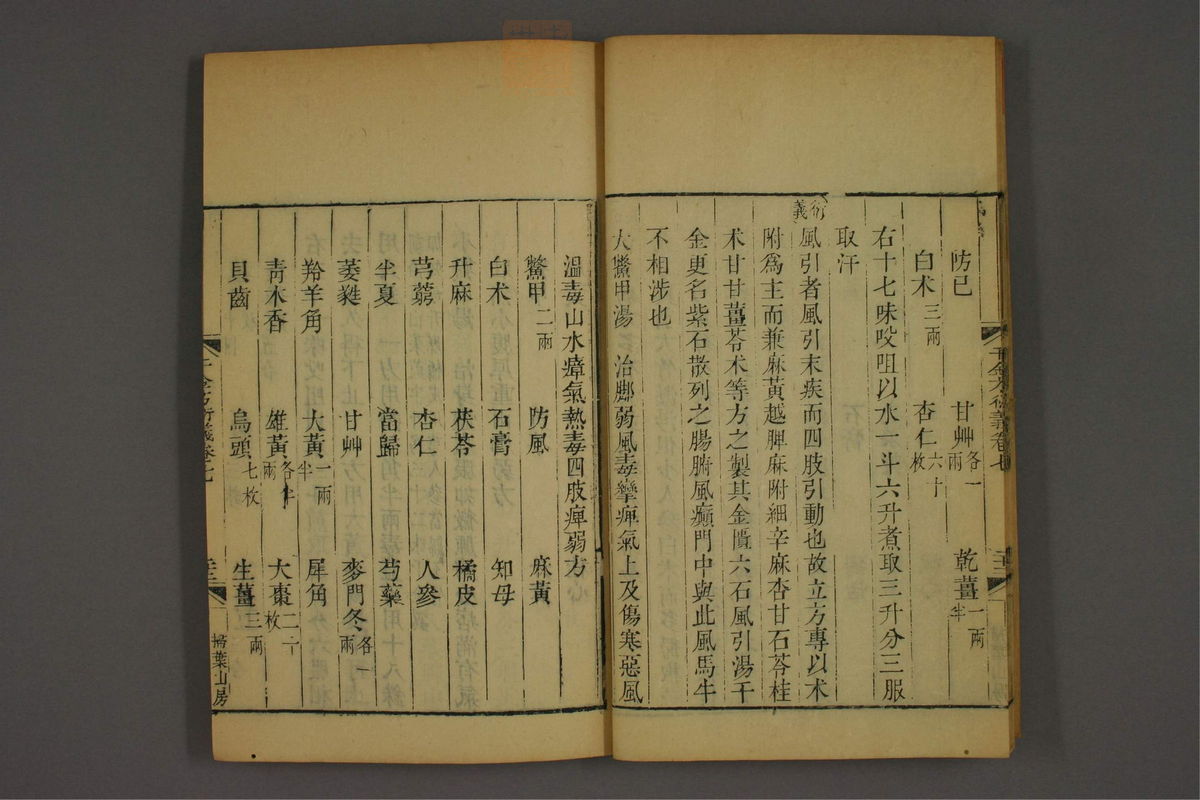 防己 甘艸各一兩 乾薑一兩半
白术三兩 杏仁六十枚
右十七味㕮咀以水一斗六升煮取三升分三服
取汗
衍義
風引者風引末疾而四肢引動也故立方專以术
附爲主而兼麻黃越脾麻附細辛麻杏甘石苓桂
术甘甘薑苓术等方之製其金匱六石風引湯千
金更名紫石散列之腸腑風癲門中與此風馬牛
不相涉也
大鱉甲湯 治腳弱風毒攣痺氣上及傷寒惡風
溫毒山水瘴氣熱毒四肢痺弱方
鱉甲二兩 防風 麻黃
白术 石膏 知母
升麻 茯苓 橘皮
芎藭 杏仁 人參
半夏 當歸 芍藥
萎蕤 甘艸 麥門冬各一兩
羚羊角 大黃一兩半 犀角
青木香 雄黃各半兩 大棗二十枚
貝齒 烏頭七枚 生薑三兩
千金方衍義卷七
掃葉山房